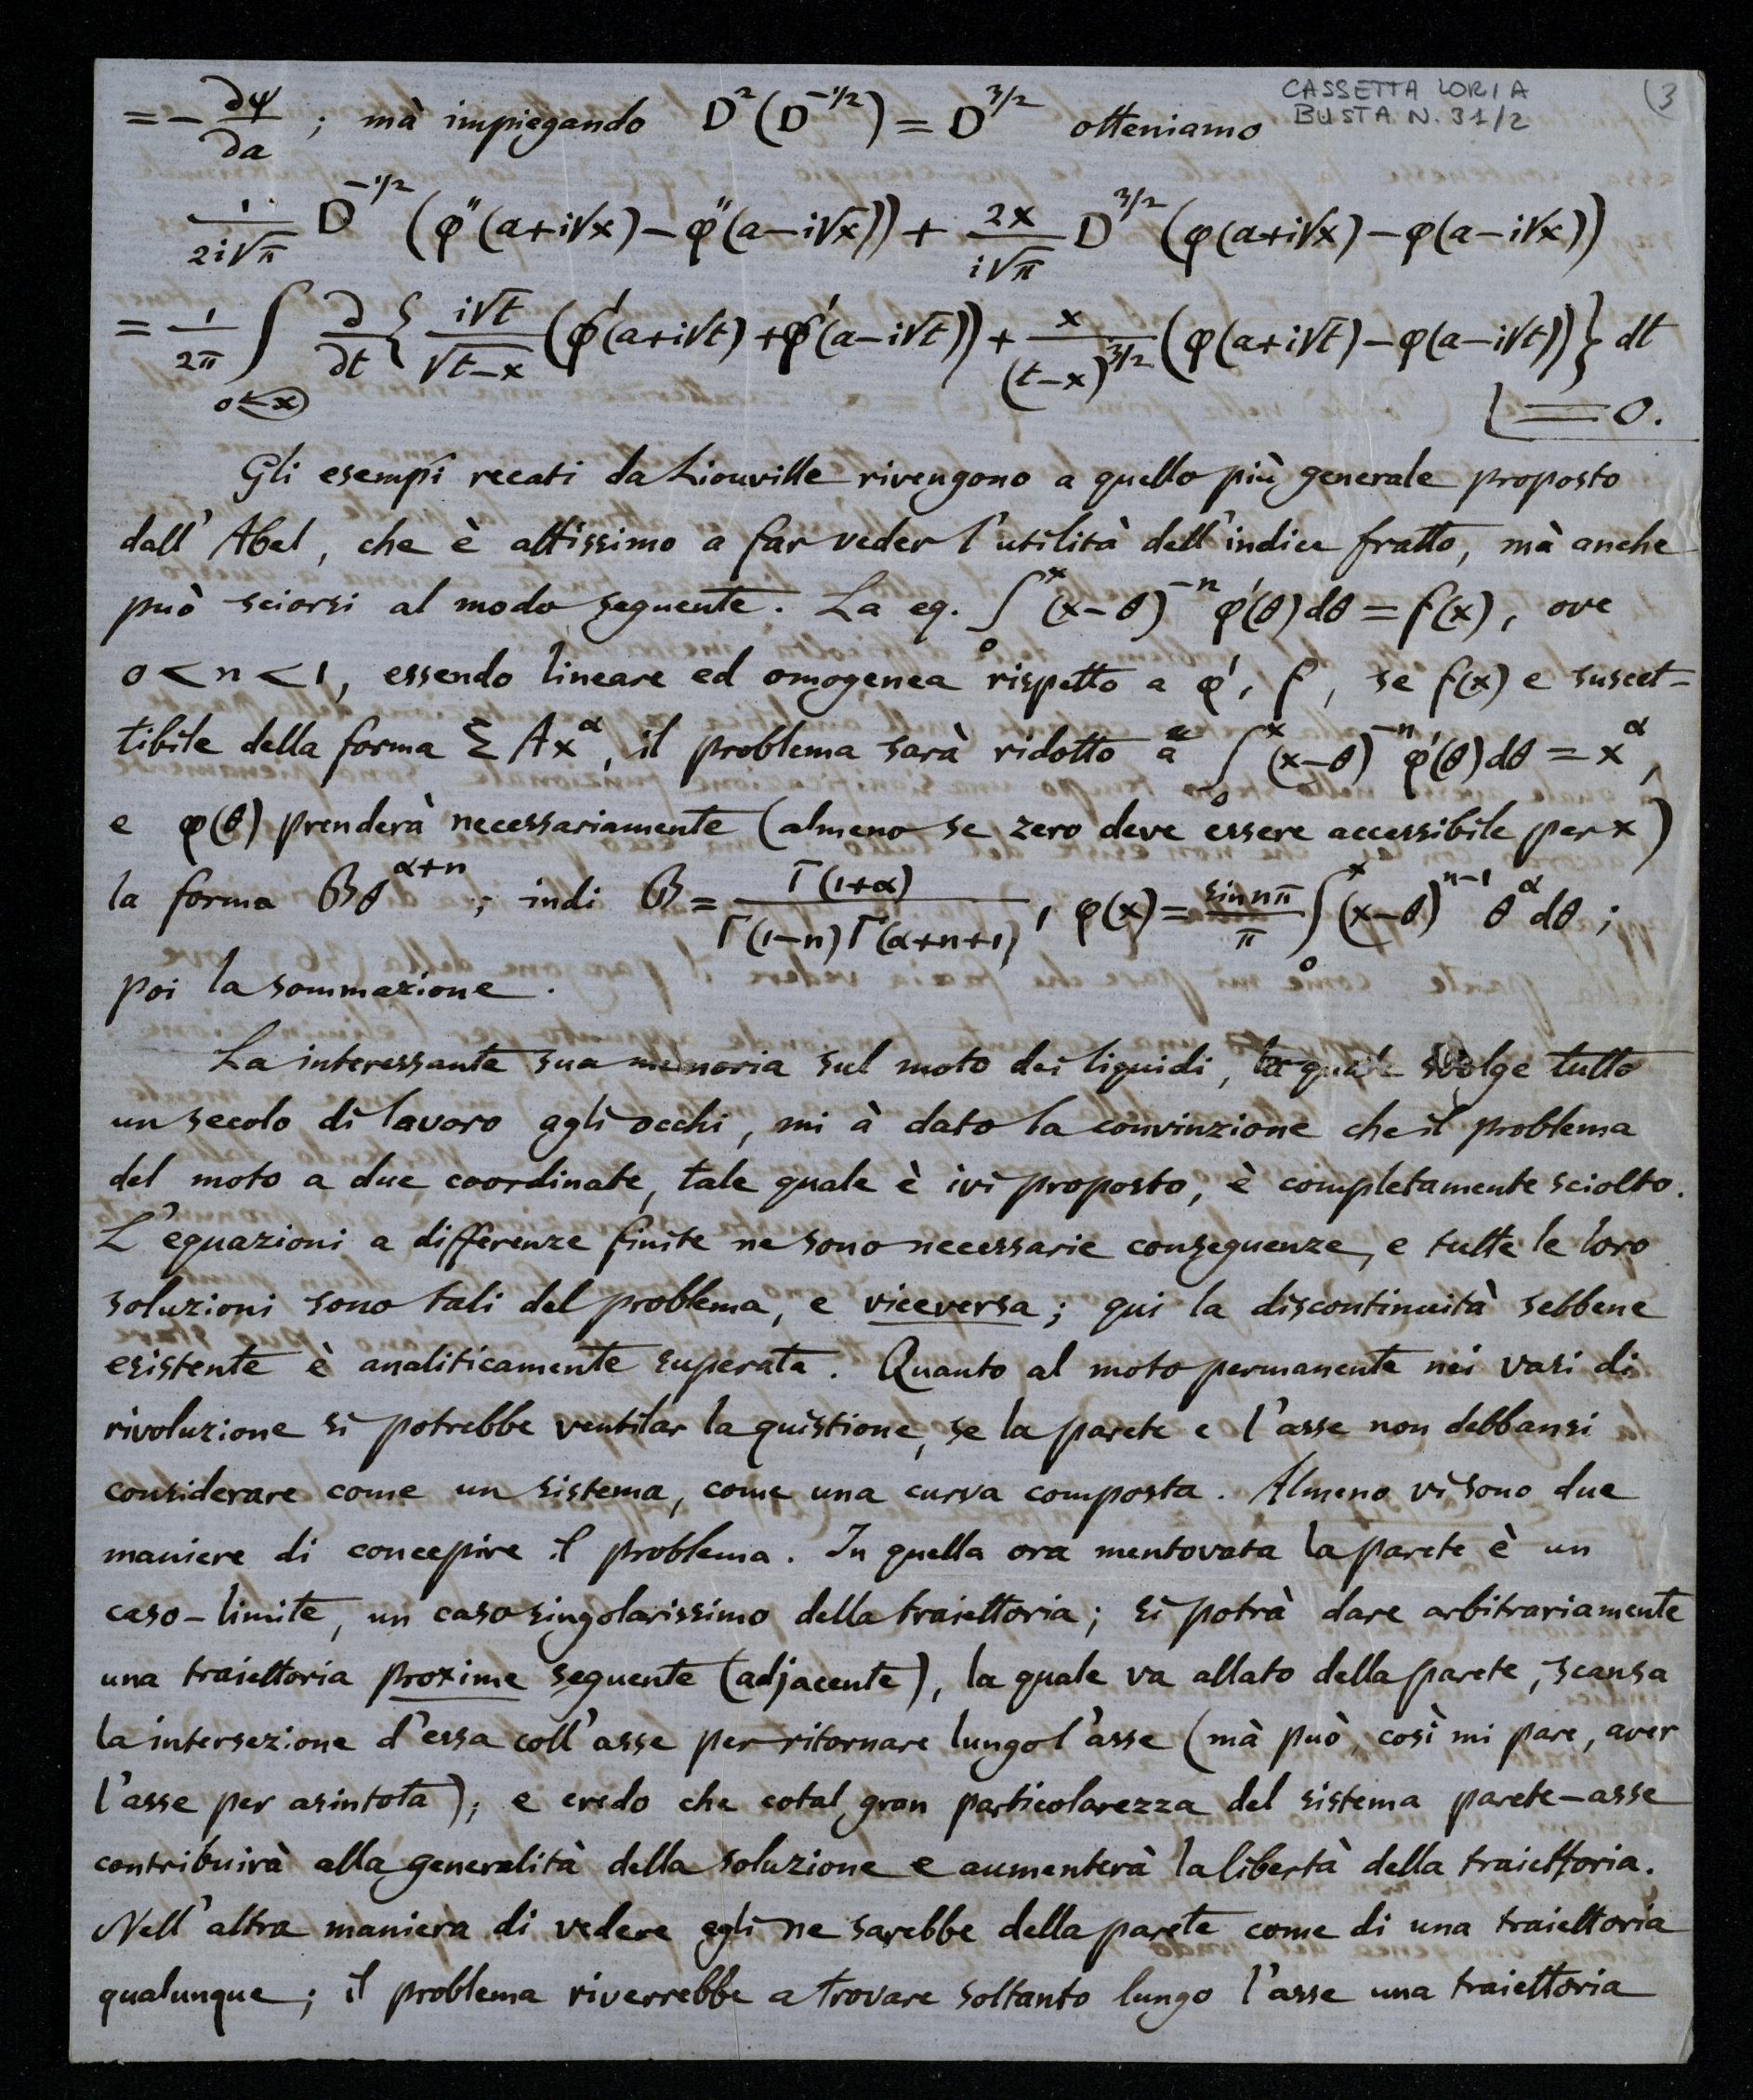 CASSETTA LORIA
BUSTA N. 31/2
(3
= − ∂ψ/∂a ; mà impiegando D²(D^{−1/2}) = D^{3/2} otteniamo
1/(2i√π) D^{−1/2} (φ''(a+i√x) − φ''(a−i√x)) + 2x/(i√π) D^{3/2} (φ(a+i√x) − φ(a−i√x))
= 1/2π ∫ ∂/∂t { i√t/√(t−x) (φ'(a+i√t) + φ'(a−i√t)) + x/(t−x)^{3/2} (φ(a+i√t) − φ(a−i√t)) } dt
= 0.
Gli esempî recati da Liouville rivengono a quello più generale proposto
dall' Abel, che è attissimo a far veder l'utilità dell'indice fratto, mà anche
può sciorsi al modo seguente. La eq. ∫₀^x (x−θ)^{−n} φ'(θ)dθ = f(x), ove
0 < n < 1, essendo lineare ed omogenea rispetto a φ', f, se f(x) e suscet-
tibile della forma Σ Ax^α, il problema sarà ridotto a ∫₀^x (x−θ)^{−n} φ'(θ)dθ = x^α,
e φ(θ) prenderà necessariamente (almeno se zero deve essere accessibile per x)
la forma Bθ^{α+n} ; indi B = Γ(1+α)/(Γ(1−n)Γ(α+n+1)), φ(x) = sin nπ/π ∫₀^x (x−θ)^{n−1} θ^α dθ ;
poi la sommazione.
La interessante sua memoria sul moto dei liquidi, la quale svolge tutto
un secolo di lavoro agli occhi, mi à dato la convinzione che il problema
del moto a due coordinate, tale quale è ivi proposto, è completamente sciolto.
L'equazioni a differenze finite ne sono necessarie conseguenze, e tutte le loro
soluzioni sono tali del problema, e viceversa ; qui la discontinuità sebbene
esistente è analiticamente superata. Quanto al moto permanente nei vasi di
rivoluzione si potrebbe ventilar la quistione, se la parete e l'asse non debbansi
considerare come un sistema, come una curva composta. Almeno vi sono due
maniere di concepire il problema. In quella ora mentovata la parete è un
caso-limite, un caso singolarissimo della traiettoria ; si potrà dare arbitrariamente
una traiettoria proxime seguente (adjacente), la quale va allato della parete, scansa
la intersezione d'essa coll'asse per ritornare lungo l'asse (mà può, così mi pare, aver
l'asse per asintota) ; e credo che cotal gran particolarezza del sistema parete-asse
contribuirà alla generalità della soluzione e aumenterà la libertà della traiettoria.
Nell'altra maniera di vedere egli ne sarebbe della parete come di una traiettoria
qualunque ; il problema riverrebbe a trovare soltanto lungo l'asse una traiettoria